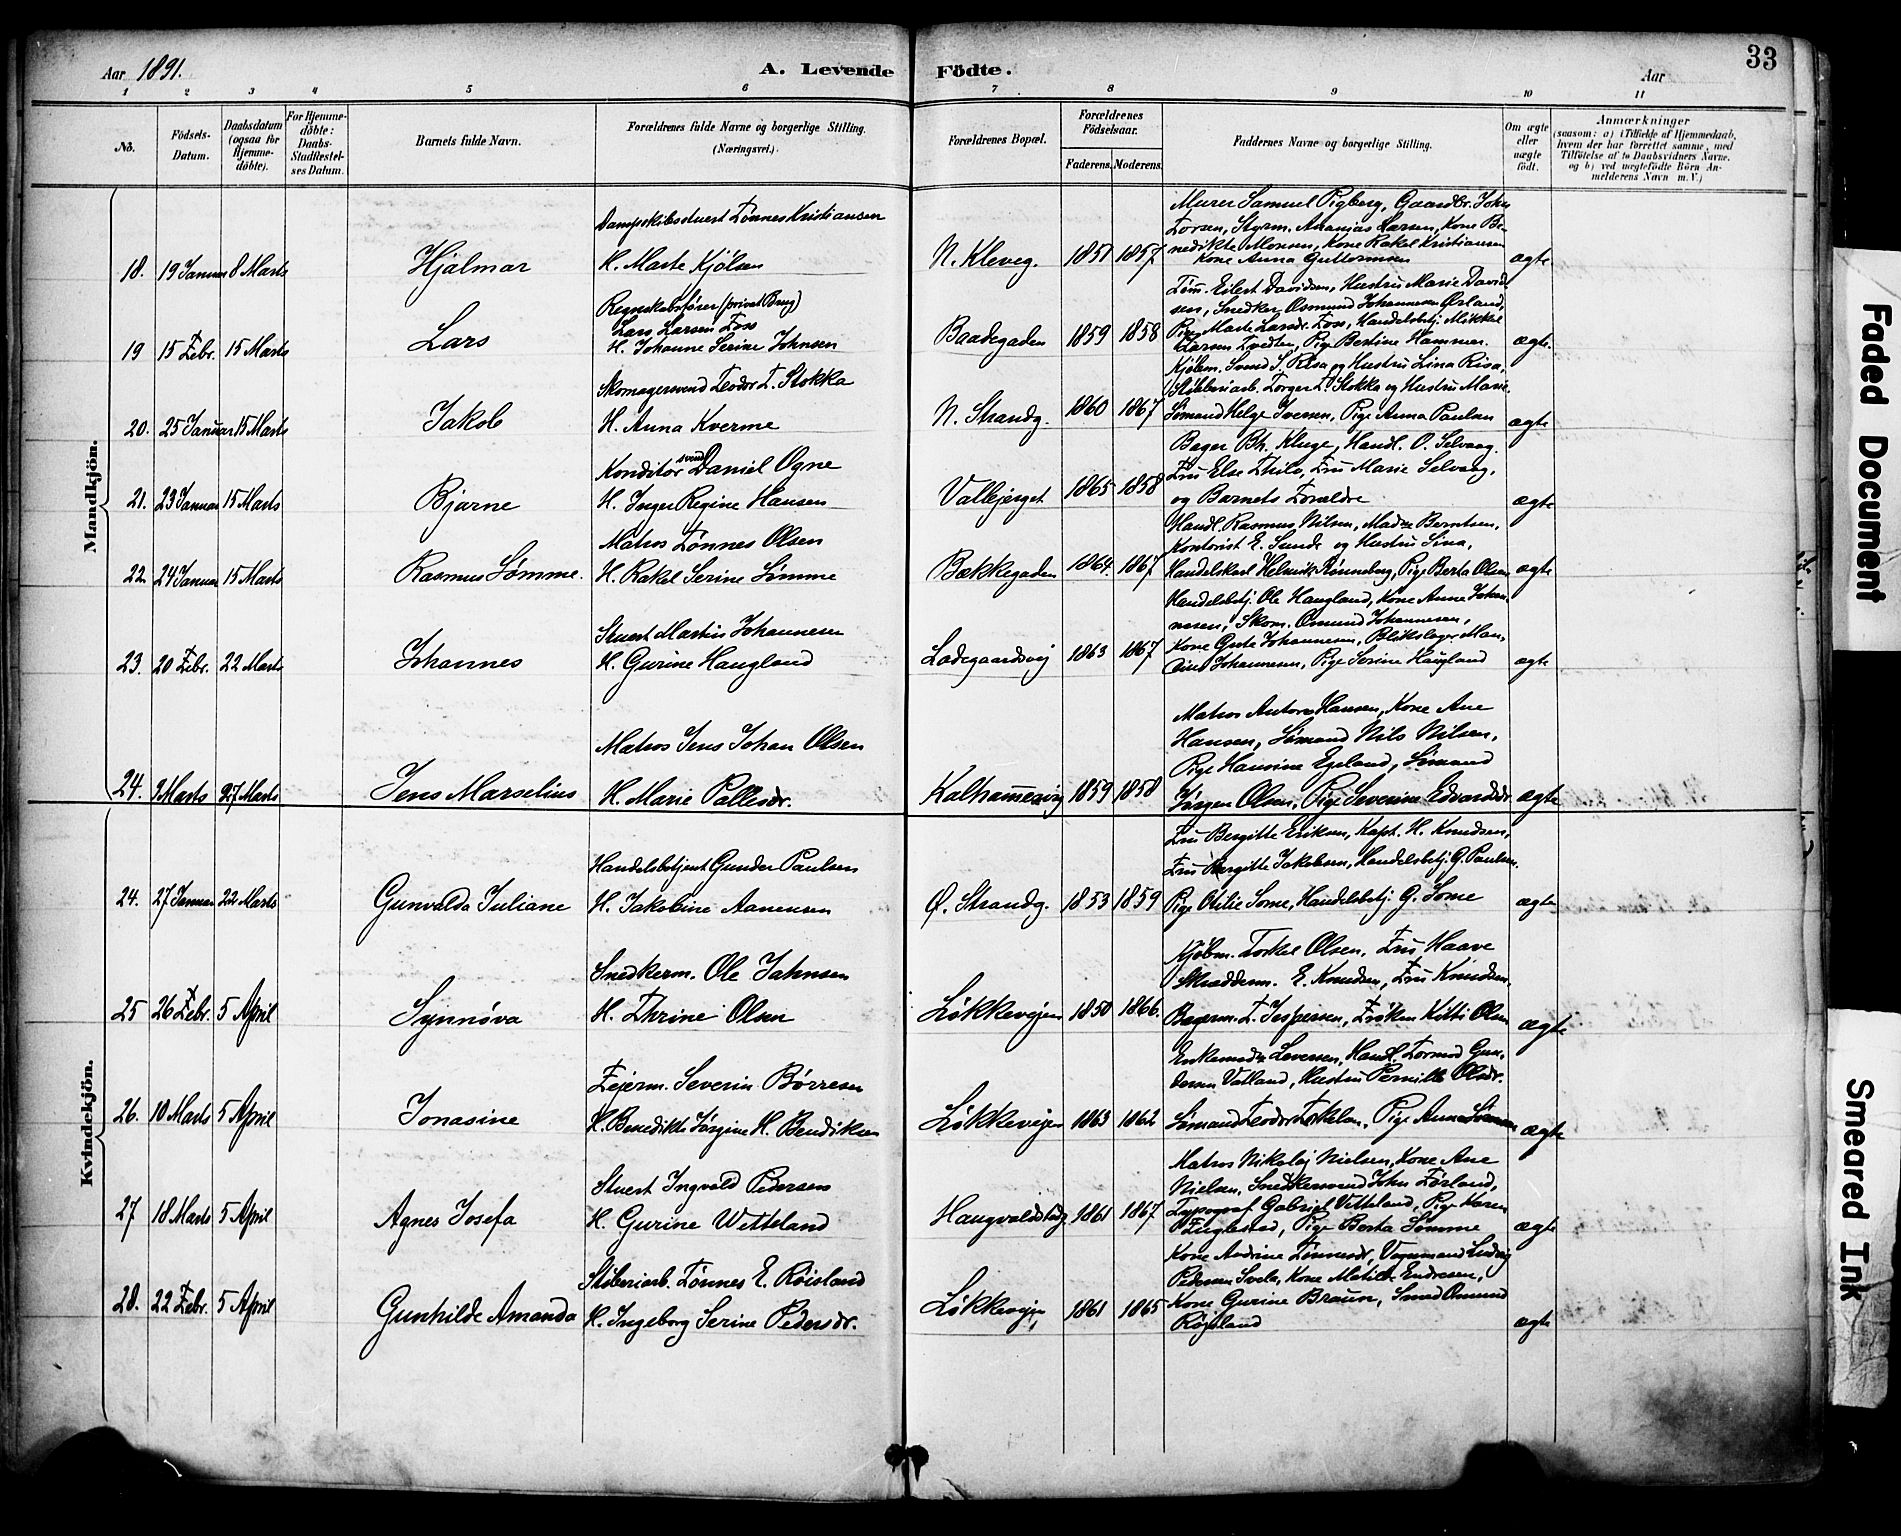 Aar 1891.
A. Levende
Födte.
Aar
33
1 2 3 4 5 6 7 8 9 10 11
No.
Födsels-
Datum.
Daabsdatum
(ogsaa for
Hjemme-
döbte).
For Hjemme-
döbte:
Daabs-
Stadfæstel-
ses Datum.
Barnets fulde Navn.
Forældrenes fulde Navne og borgerlige Stilling.
(Næringsvei.)
Forældrenes Bopæl.
Forældrenes
Födselsaar.
Faderens. Moderens.
Faddernes Navne og borgerlige Stilling.
Om ægte
eller
uægte
født.
Anmærkninger
(saasom: a) i Tilfælde af Hjemmedaab,
hvem der har forrettet samme, med
Tilföielse af to Daabsvidners Navne.
og b) ved uægtefödte Börn An-
melderens Navn m.V.)
Mandkjön.
Dampskibsstuert Tønnes Kristiansen
Murer Samuel Pigberg, Gaardbr. John
Torsen, Styrm. Ananias Larsen, Kone Be-
nedikte Monsen, Kone Rakel Kristiansen
Kone Anna Guttormsen
18. 19 Januar 8 Marts Hjalmar H. Marte Kjølsen N. Kleveg. 1851 1857 ægte
Regnskabsfører (privat Brug)
Lars Larsen Foss
Tøm. Eilert Davidsen, Hustru Marie David-
sen, Snedker Osmund Johannesen Ørland,
Pige Marte Larsdr. Foss, Handelsbetj. Mikkel
Larsen Tvedten, Pige Bertine Hammer.
19 15 Febr. 15 Marts Lars H. Johanne Serine Johnsen Baadegaden 1859 1858 ægte.
Skomagersvend Teodor T. Stokka
Kjøbm. Svend S. Risa og Hustru Lina Risa,
Støberiarb. Torger T. Stokka og Hustru Marie
Sømand Helge Iversen, Pige Anna Paulsen
20. 25 Januar 15 Marts Jakob H. Anna Kverme N. Strandg. 1860 1867 ægte
Konditorsvend Daniel Ogne
Bager Bh. Kluge, Handl. O. Selvaag.
Fru Else Thilo, Fru Marie Selvaag,
og Barnets Forældre
21. 23 Januar 15 Marts Bjarne H. Inger Regine Hansen Valbjerget 1865 1858 ægte
Matros Tønnes Olsen
Handl. Rasmus Nilsen, Madm Berntsen,
Kontorist E. Sunde og Hustru Sina,
Handelskarl Helmik Rønneberg, Pige Berta Olsen
22. 24 Januar 15 Marts Rasmus Sømme. H. Rakel Serine Sømme Bækkegaden 1864. 1867 ægte
Stuert Martin Johannesen
Handelsbetj. Ole Haugland, Kone Anne Johan-
nesen, Skom. Osmund Johannesen,
Kone Gurte Johannesen, Blikslager Mau-
Johannesen, Pige Serine Haugland
23. 20 Febr. 22 Marts Johannes H. Gurine Haugland Ladegaardsvej 1863 1867 ægte
Matros Jens Johan Olsen
Matros Anton Hansen, Kone Ane
Hansen, Sømand Nils Nilsen,
Pige Hansine Egeland, Sømand
Jørgen Olsen, Pige Severine Edvardsdr.
24. 9 Marts 27 Marts Jens Marselius H. Marie Pallesdr. Kalhammervig 1859 1858 ægte
Kvindekjön.
Handelsbetjent Gunder Paulsen
Fru Bergitte Eriksen, Kapt. H. Knudsen,
Fru Bergitte Jakobsen, Handelsbetj. G. Paulsen.
Pige Otilie Some, Handelsbetj. G. Some
24. 27 Januar 22 Marts Gunvalda Juliane H. Jakobine Aanensen Ø. Strandg. 1853 1859 ægte
Snedkerm. Ole Jahnsen
Kjøbm. Torkel Olsen, Fru Haave
Skræddem. E. Knudsen, Fru Knudsen.
Bagerm. T. Jespersen, Frøken Kitti Olsen
25 26 Febr. 5 April Synnøva H. Thrine Olsen Løkkevejen 1850 1866. ægte
Fejerm. Severin Børresen
Enkemadm Leversen, Handl. Tormod Gun-
dersen Vatland, Hustru Pernille Olsdr.
Sømand Teodor Torkelsen, Pige Anna Sømme
26. 10 Marts 5 April Jonasine H. Benedikte Jørgine H. Bendiksen Løkkevejen 1863 1862 ægte
Stuert Ingvald Pedersen
Matros Nikolaj Nielsen, Kone Ane
Nielsen, Snedkersvend John Førland,
Typograf Gabriel Vitteland, Pige Karen
Fuglestad, Pige Berta Sømme
27 18 Marts 5 April Agnes Josefa H. Gurine Witteland Haugvaldstadg 1861 1867 ægte
Støberiarb. Tønnes E. Røisland
Kone Andrine Tønnesdr, Vognmand Ludvig
Pedersen Svela, Kone Matilde Endresen,
Kone Gurine Braun, Smed Osmund
Røjsland
28. 22 Febr. 5 April Gunhilde Amanda H. Ingeborg Serine Pedersdr. Løkkevejen 1861 1865 ægte
Faded Document
Smeared Ink